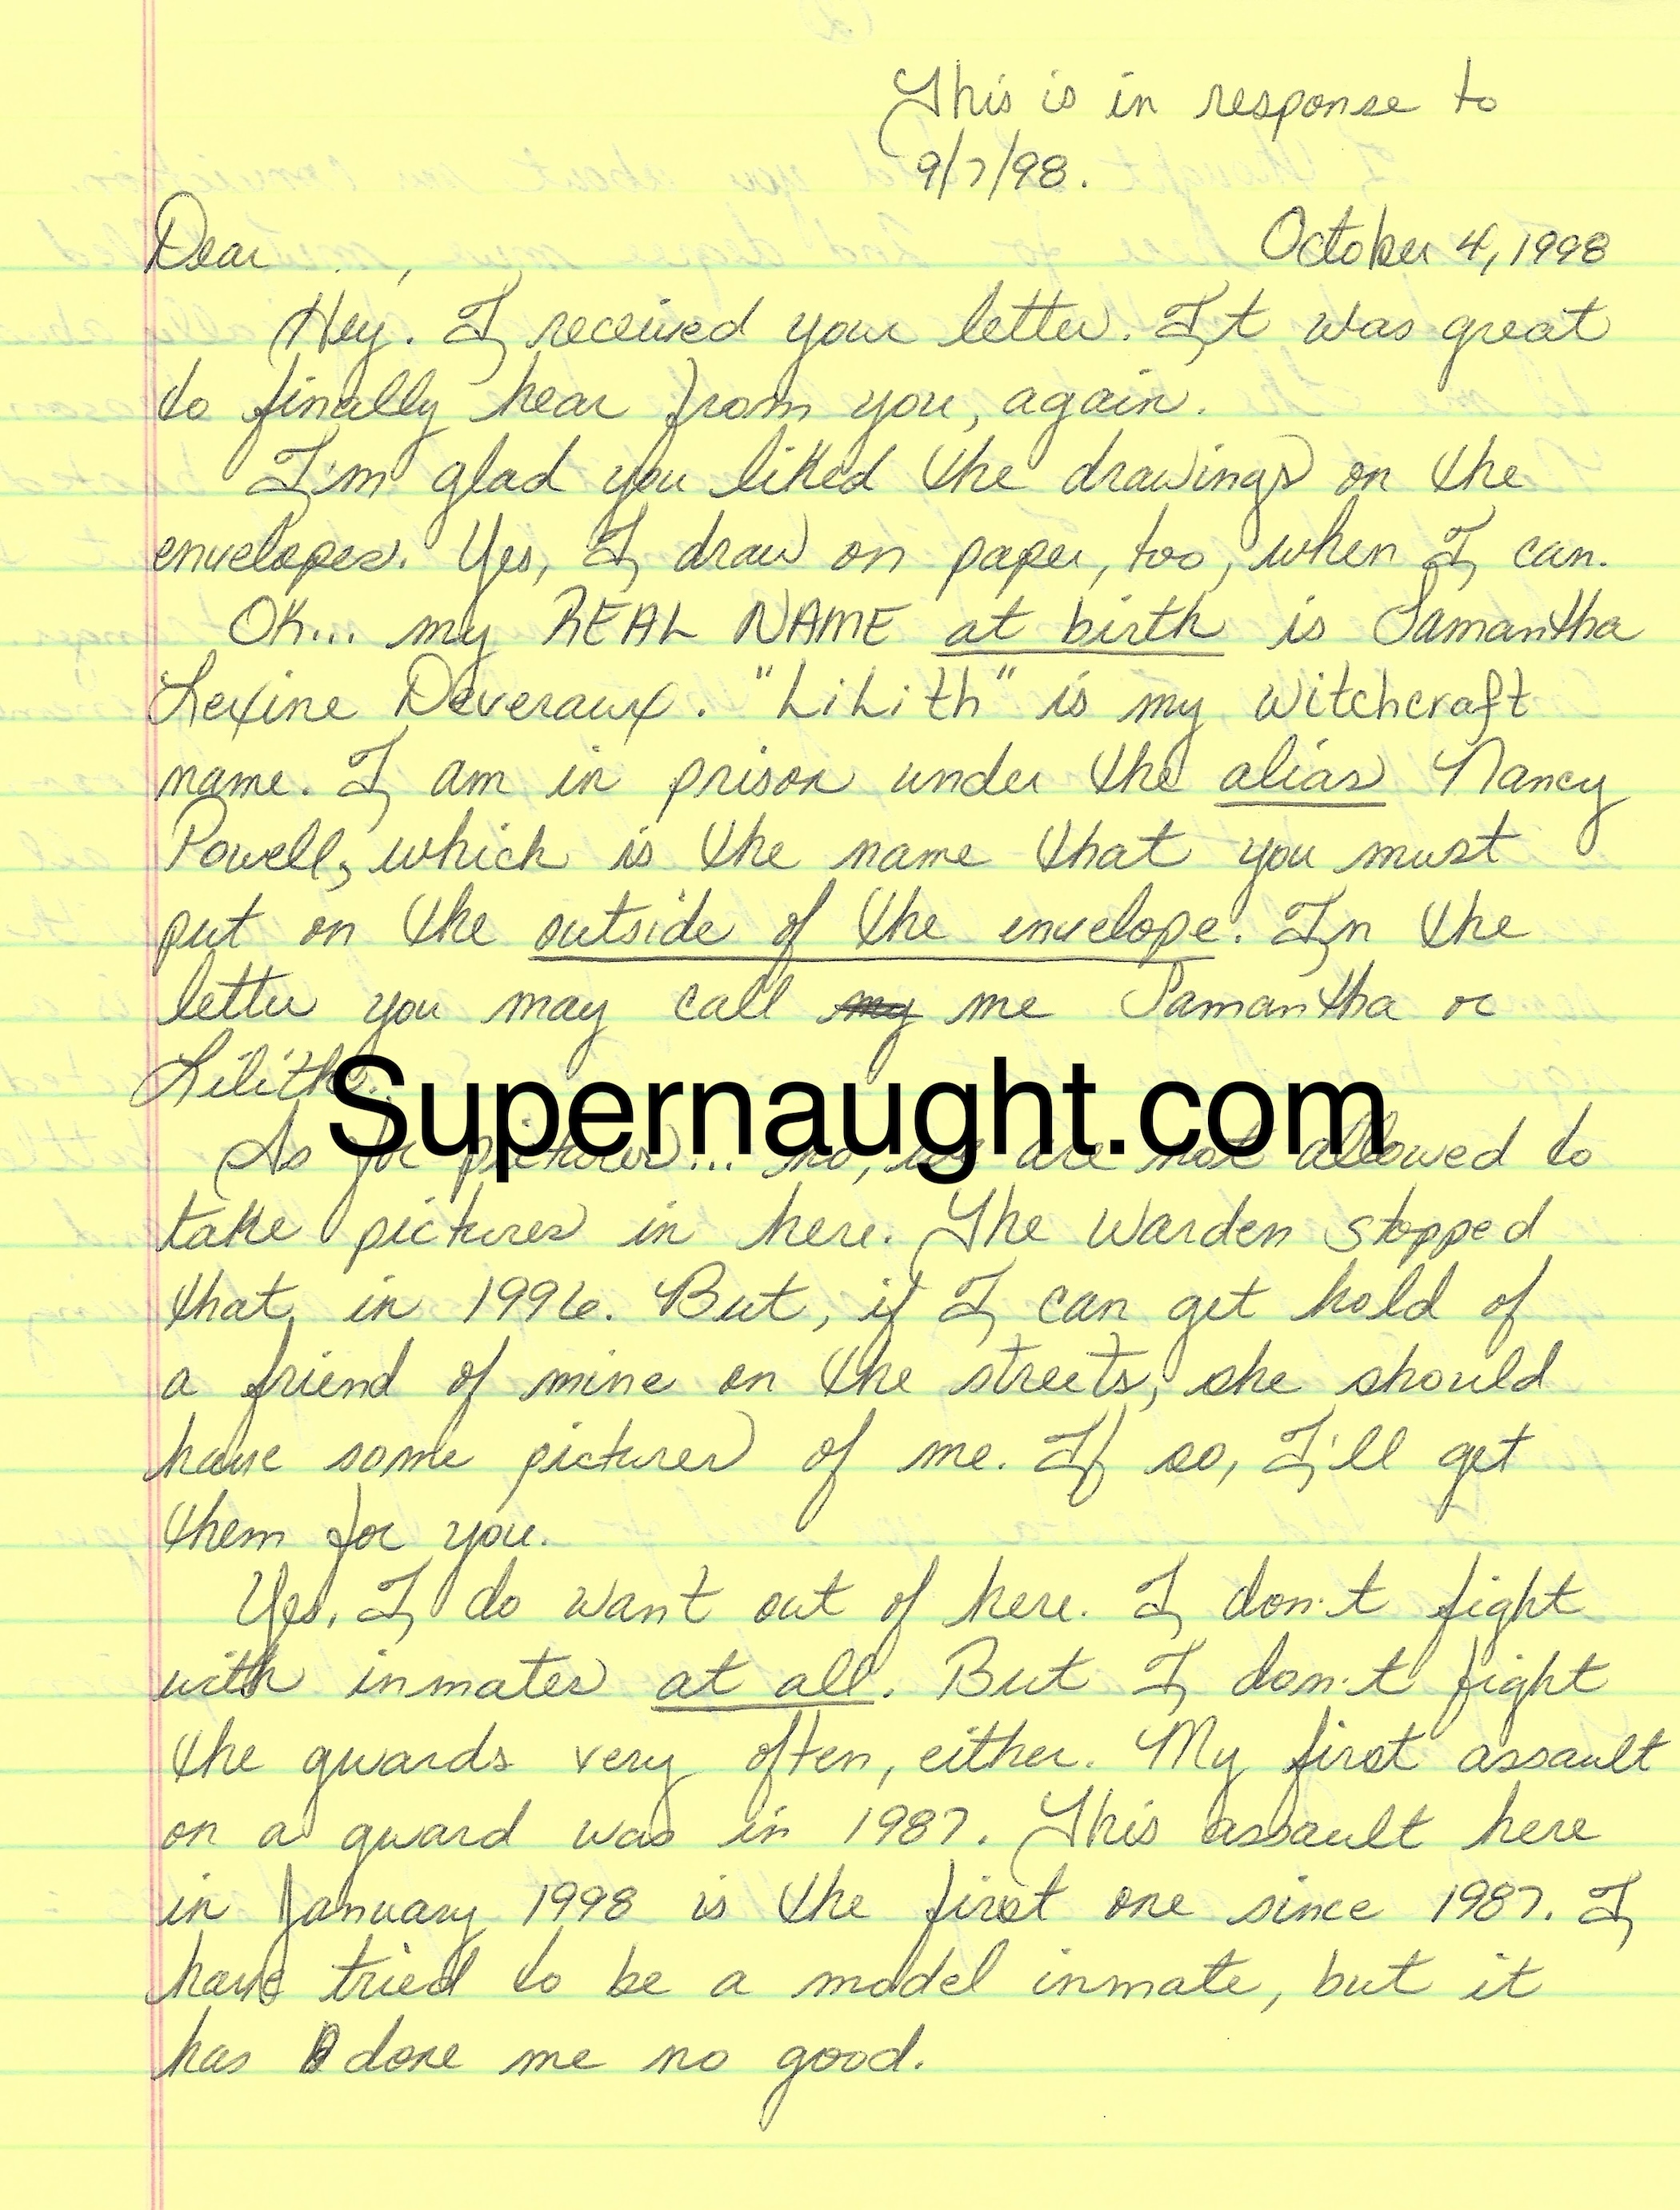 This is in response to
9/7/98.
Dear , October 4, 1998
Hey. I received your letter. It was great
to finally hear from you, again.
I'm glad you liked the drawings on the
envelopes. Yes, I draw on paper, too, when I can.
OK... my REAL NAME at birth is Samantha
Lexine Deveraux. "LiLith" is my witchcraft
name. I am in prison under the alias Nancy
Powell, which is the name that you must
put on the outside of the envelope. In the
letter you may call my me Samantha or
Lilith.
Supernaught.com
As for pictures... no, we are not allowed to
take pictures in here. The Warden stopped
that in 1996. But, if I can get hold of
a friend of mine on the streets, she should
have some pictures of me. If so, I'll get
them for you.
Yes, I do want out of here. I don't fight
with inmates at all. But I don't fight
the guards very often, either. My first assault
on a guard was in 1987. This assault here
in January 1998 is the first one since 1987. I
have tried to be a model inmate, but it
has done me no good.